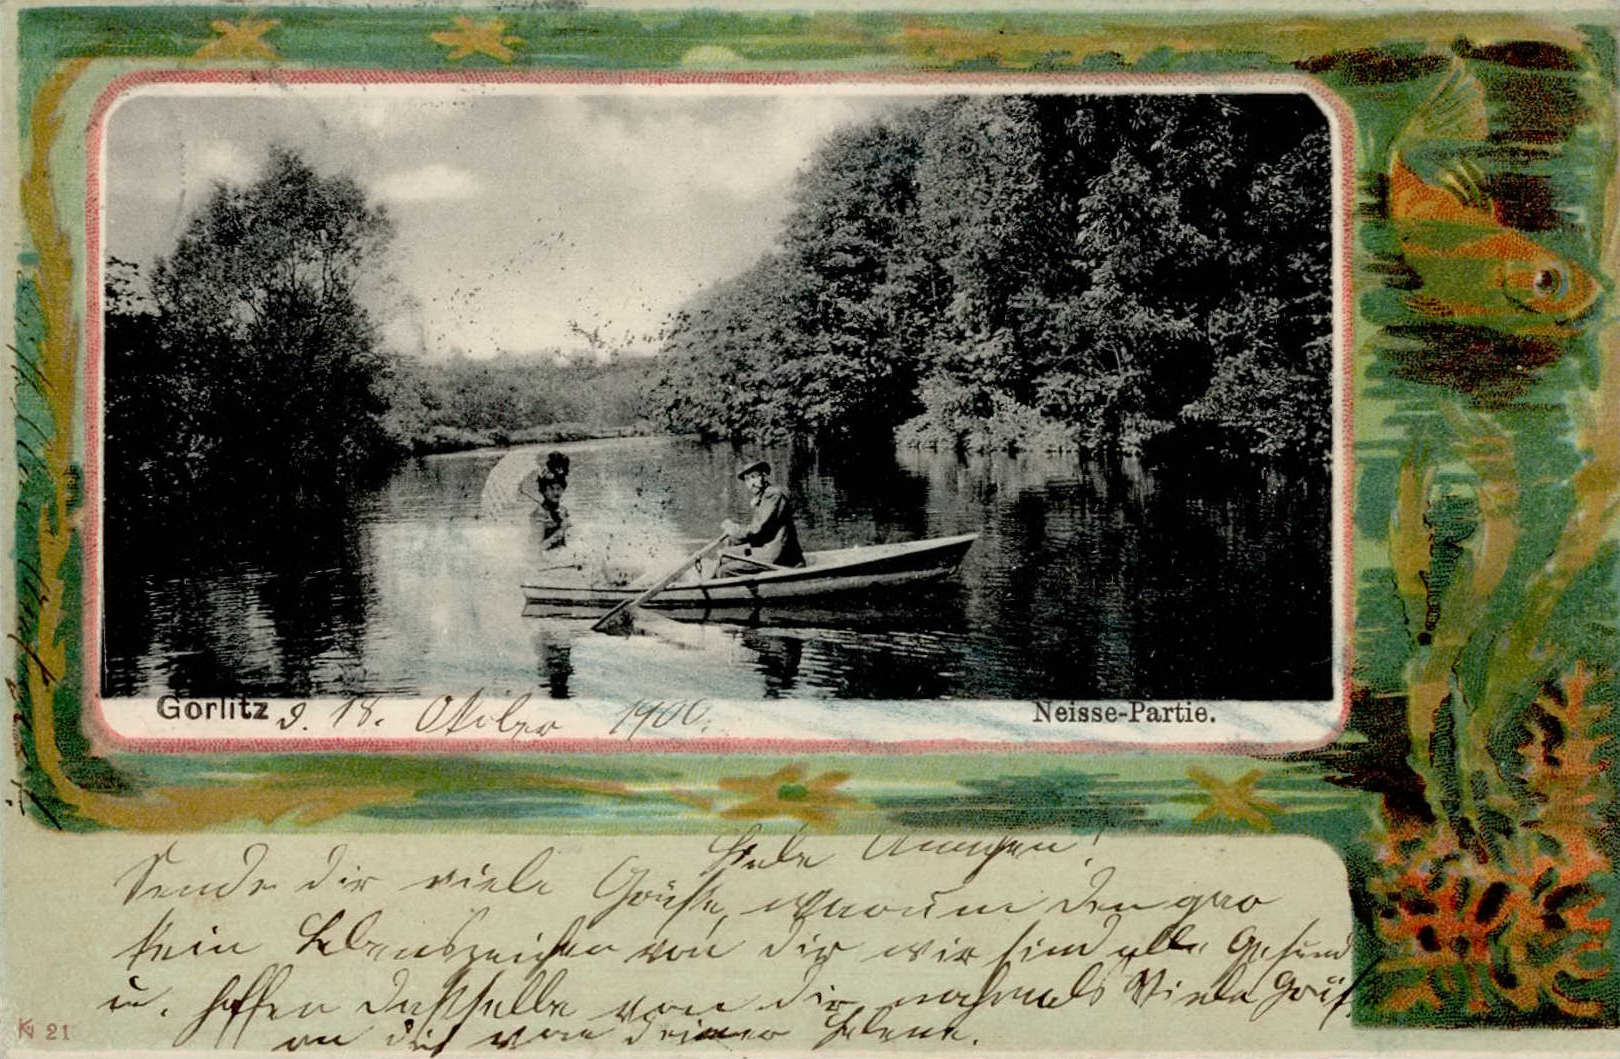 Görlitz d. 18. Oktober 1900.
Neisse-Partie.
Liebe Annchen!
Sende dir viele Grüße, warum den gar
kein Lebenszeichen von dir wir sind alle Gesund
u. hoffen dasselbe von dir nochmals Viele Grüß
an dich von deiner Helene.
KN 21